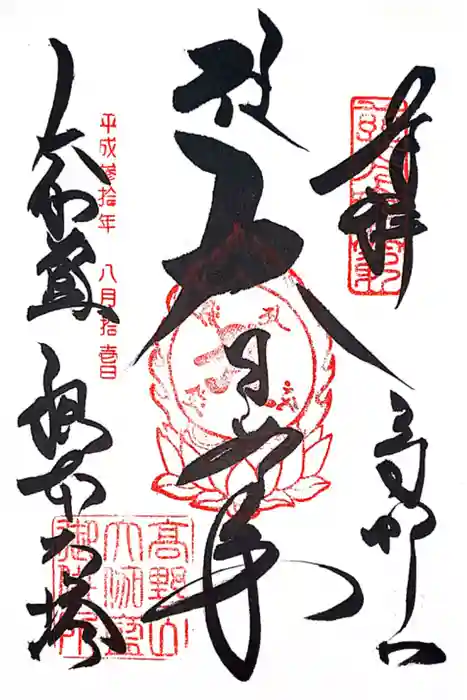 奉拝 高野山
大日尊
平成参拾年 八月拾壱日
大伽藍 根本大塔
高野山
大伽藍
御供所